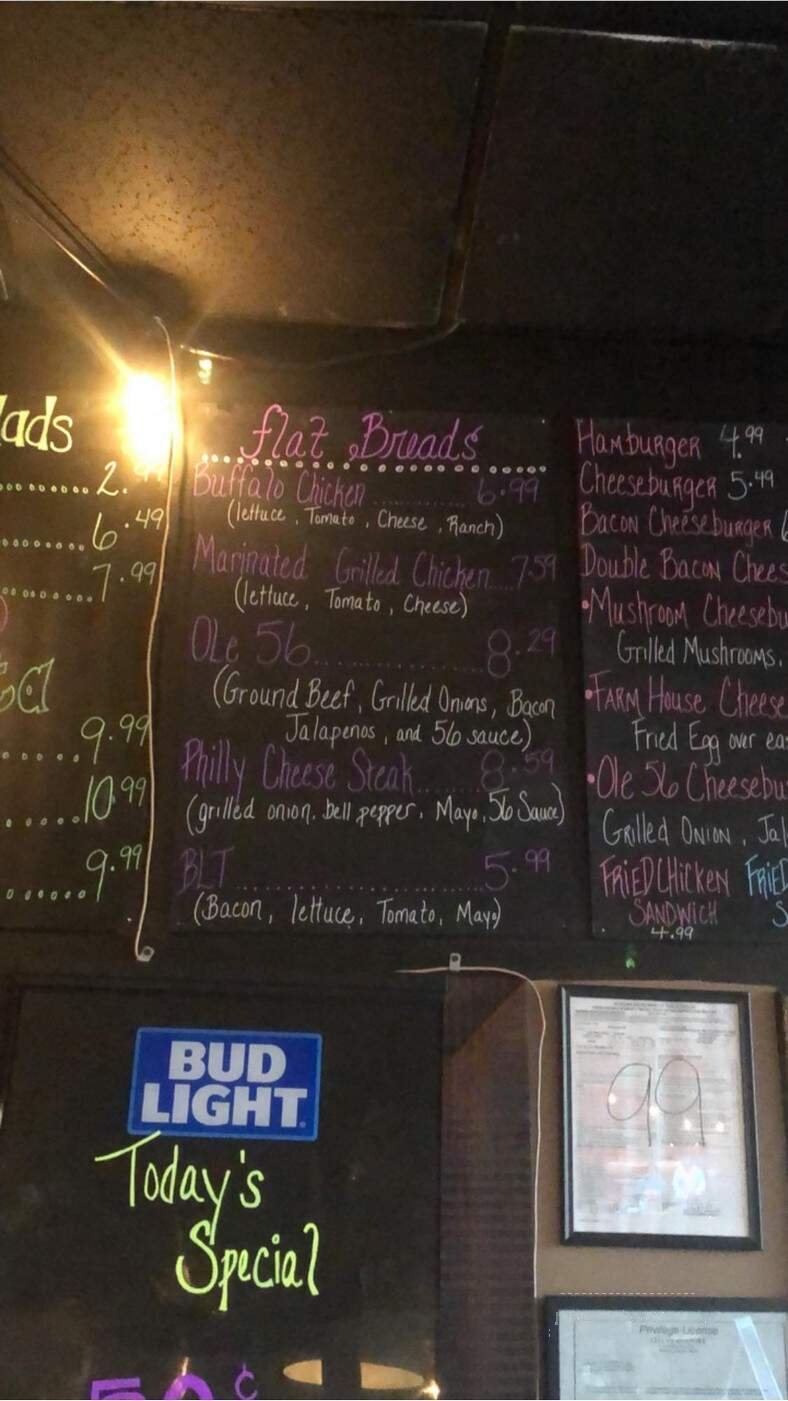 lads
2.
6.49
7.99
9.99
10.99
9.99
flat Breads
Buffalo Chicken 6.99
(lettuce, Tomato, Cheese, Ranch)
Marinated Grilled Chicken....7.59
(lettuce, Tomato, Cheese)
OLe 56 8.29
(Ground Beef, Grilled Onions, Bacon
Jalapenos, and 56 sauce)
Philly Cheese Steak 8.59
(grilled onion. bell pepper. Mayo, 56 Sauce)
BLT 5.99
(Bacon, lettuce, Tomato, Mayo)
Hamburger 4.99
Cheeseburger 5.49
Bacon Cheeseburger 6
Double Bacon Chees
•Mushroom Cheesebu
Grilled Mushrooms,
•Farm House Cheese
Fried Egg over ea
•Ole 56 Cheesebu
Grilled Onion, Jal
FRiED CHicKEN
SANDWiCH
4.99
FRiED
S
BUD
LIGHT
Today's
Special
50¢
99
Privilege License